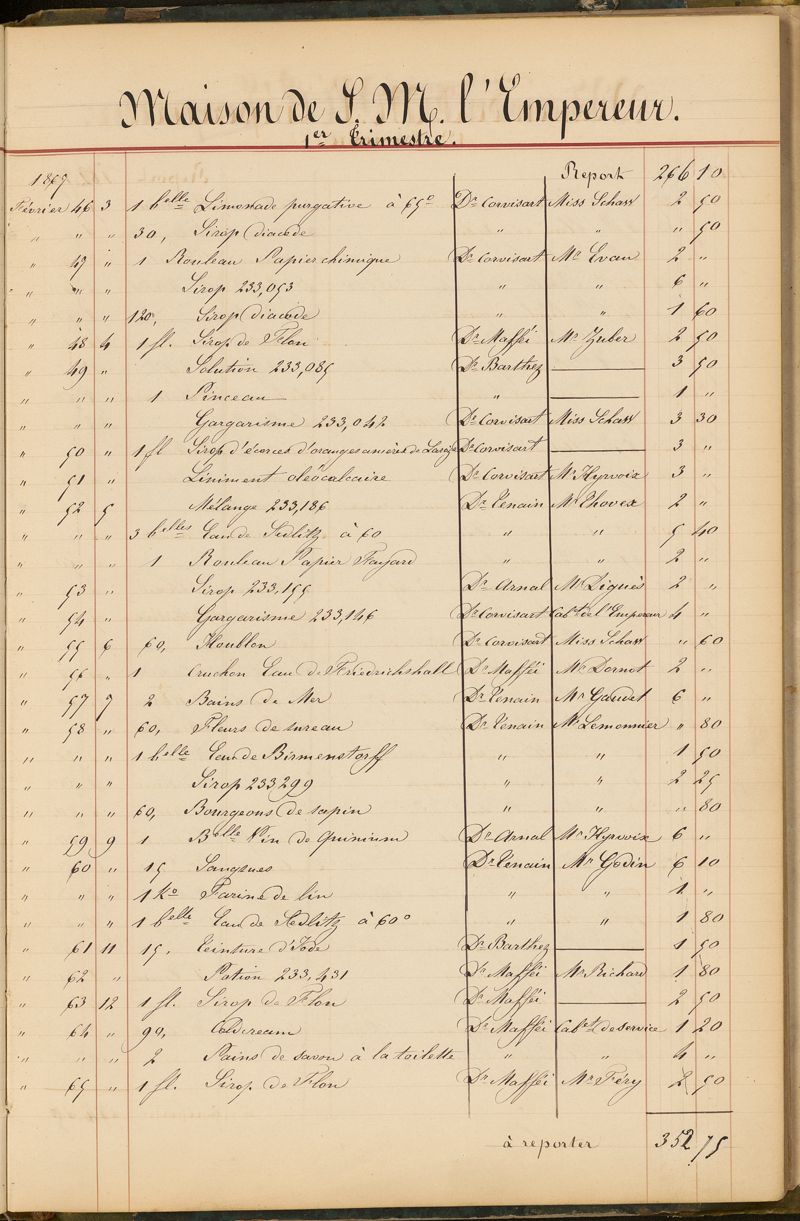 Maison de S. M. l'Empereur.
1er Trimestre.
1869 Report 266 10
Février 46 3 1 belle Limonade purgative à 65° Dr Corvisart Miss Schaw 2 50
" " " 30, Sirop diacode " " " 50
" 47 " 1 Rouleau Papier chimique Dr Corvisart Mr Evan 2 "
" " " Sirop 233,053 " " 6 "
" " " 120, Sirop diacode " " 1 60
" 48 4 1 fl. Sirop de Flon Dr Mafféi Mr Zuber 2 50
" 49 " Solution 233,085 Dr Barthez 3 50
" " " 1 Pinceau " 1 "
" " " Gargarisme 233,042 Dr Corvisart Miss Schaw 3 30
" 50 " 1 fl Sirop d'écorces d'oranges amères de Laroze Dr Corvisart 3 "
" 51 " Liniment oléocalcaire Dr Corvisart Mr Hyrvoix 3 "
" 52 5 Mélange 233,186 Dr Tenain Mr Thovex 2 "
" " " 3 belles Eau de Sedlitz à 60 " " 5 40
" " " 1 Rouleau Papier Fayard " " 2 "
" 53 " Sirop 233,155 Dr Arnal Mr Digués 2 "
" 54 " Gargarisme 233,146 Dr Corvisart Cabt de l'Empereur 4 "
" 55 6 60, Houblon Dr Corvisart Miss Schaw " 60
" 56 " 1 Cruchon Eau de Friedrichshall Dr Mafféi Mr Dornot 2 "
" 57 7 2 Bains de Mer Dr Tenain Mr Gaudet 6 "
" 58 " 60, Fleurs de sureau Dr Tenain Mr Lemonnier " 80
" " " 1 belle Eau de Birmenstorff " " 1 50
" " " Sirop 233299 " " 2 25
" " " 60, Bourgeons de sapin " " " 80
" 59 9 1 Belle Vin de Quinium Dr Arnal Mr Hyrvoix 6 "
" 60 " 15 Sangsues Dr Tenain Mr Godin 6 10
" " " 1 ko Farine de lin " " 1 "
" " " 1 belle Eau de Sedlitz à 60° " " 1 80
" 61 11 15, Teinture d'Iode Dr Barthez 1 50
" 62 " Potion 233,431 Dr Mafféi Mr Richard 1 80
" 63 12 1 fl. Sirop de Flon Dr Mafféi 2 50
" 64 " 90, Coldcream Dr Mafféi Cabt de service 1 20
" " " 2 Pains de savon à la toilette " " 4 "
" 65 " 1 fl. Sirop de Flon Dr Mafféi Mr Féry 2 50
à reporter 352 75